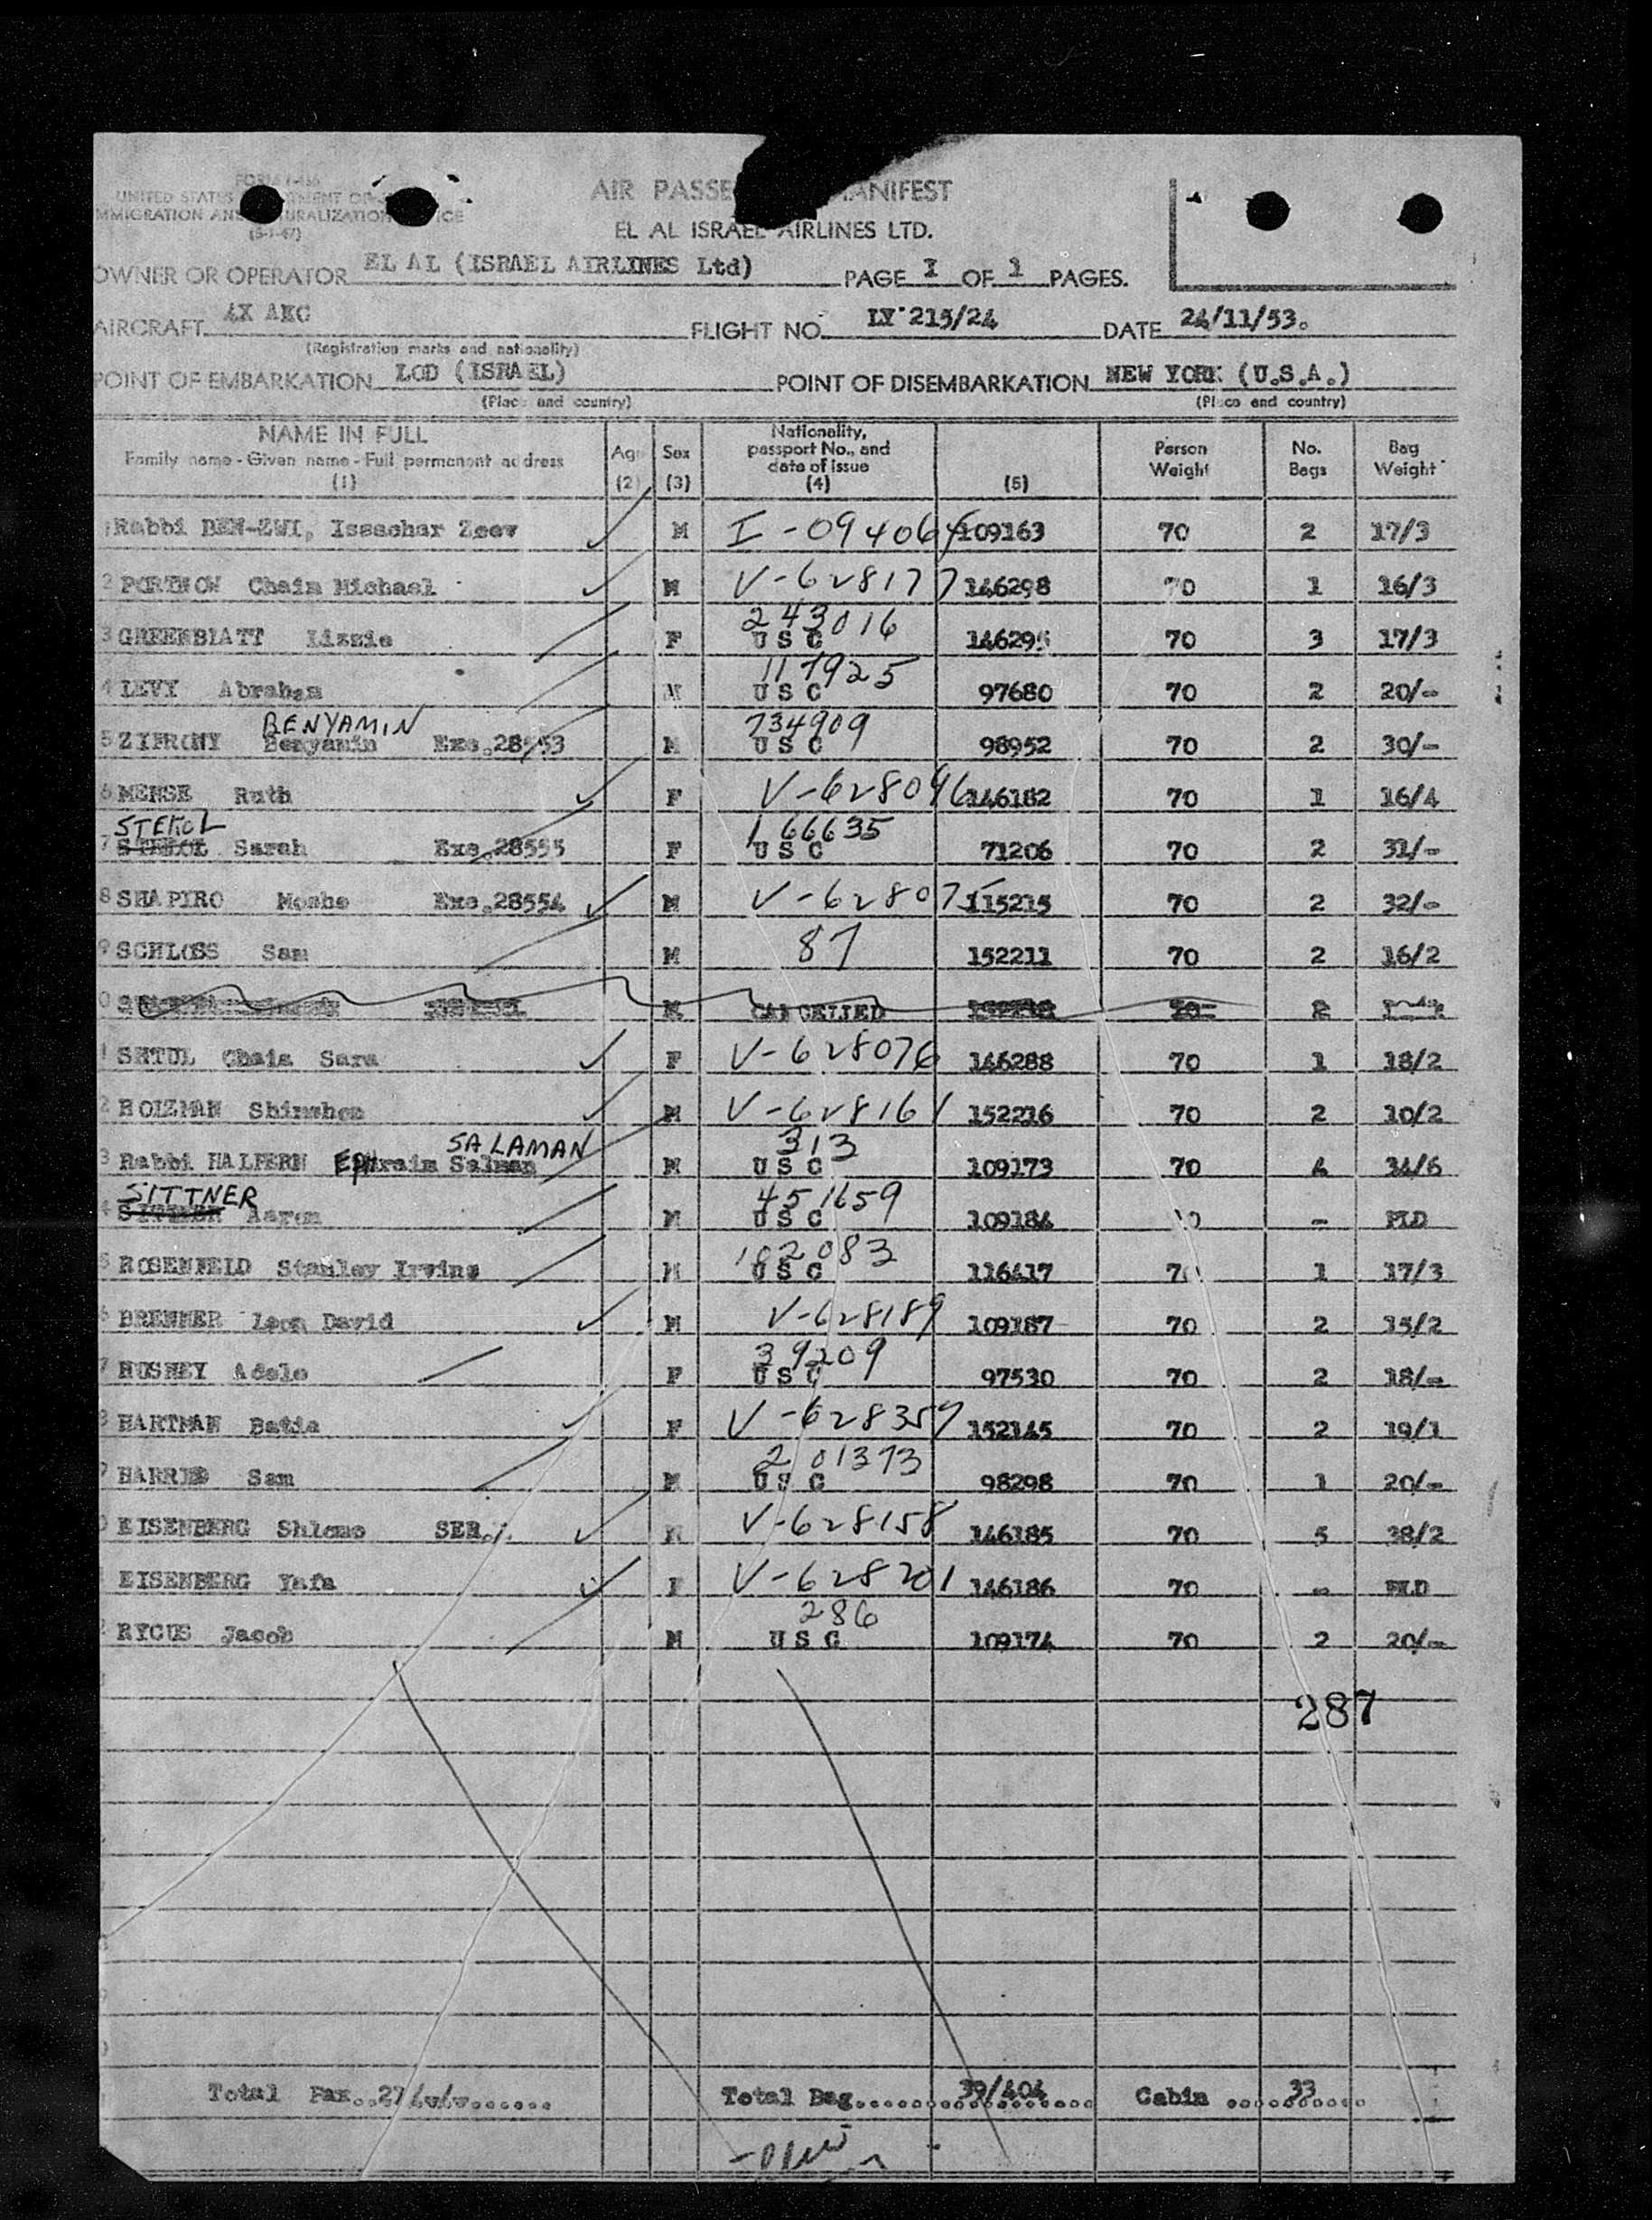 FORM I-466
UNITED STATES
IMMIGRATION AND
(5-1-47)
AIR PASSE ANIFEST
EL AL ISRAEL AIRLINES LTD.
OWNER OR OPERATOR EL AL (ISRAEL AIRLINES Ltd) PAGE I OF 1 PAGES.
AIRCRAFT 4X AKC FLIGHT NO. LY 215/24 DATE 24/11/53.
(Registration marks and nationality)
POINT OF EMBARKATION LOD (ISRAEL) POINT OF DISEMBARKATION NEW YORK (U.S.A.)
(Place and country) (Place and country)
NAME IN FULL Age Sex Nationality, passport No., and date of issue Person Weight No. Bags Bag Weight
Family name - Given name - Full permanent address
(1) (2) (3) (4) (5)
Rabbi BEN-ZWI, Issachar Zeev M I-094064 109163 70 2 17/3
2 PORTNOW Chaim Michael M V-628177 146298 70 1 16/3
3 GREENBLATT Lizzie F 243016 USC 146295 70 3 17/3
4 LEVY Abraham M 117925 USC 97680 70 2 20/-
BENYAMIN
5 ZIFRONY Benyamin Exc.28553 M 734909 USC 98952 70 2 30/-
6 MENSE Ruth F V-628096 146182 70 1 16/4
STEKOL
7 Sarah Exc.28555 F 166635 USC 71206 70 2 31/-
8 SHAPIRO Moshe Exc.28554 M V-628075 115215 70 2 32/-
9 SCHLOSS Sam M 87 152211 70 2 16/2
0 M CANCELLED 70 2
1 SETUL Chaia Sara F V-628076 146288 70 1 18/2
2 ROIZMAN Shimshon M V-628161 152216 70 2 10/2
SALAMAN
3 Rabbi HALPERN Ephraim Salman M 313 USC 109173 70 4 34/6
SITTNER
4 Aaron M 451659 USC 109184 - PLD
5 ROSENFELD Stanley Irving M 102083 USC 116417 70 1 17/3
6 BRENNER Leon David M V-628189 109187 70 2 15/2
7 HUSNEY Adele F 39209 USC 97530 70 2 18/-
8 HARTMAN Batia F V-628359 152145 70 2 19/1
9 HARRIS Sam M 201373 USC 98298 70 1 20/-
0 EISENBERG Shlomo SER. M V-628158 146185 70 5 38/2
EISENBERG Yafa F V-628201 146186 70 - PLD
2 RYCUS Jacob M 286 USC 109174 70 2 20/-
287
Total Pax..27/ Total Bag 39/404 Cabin 33